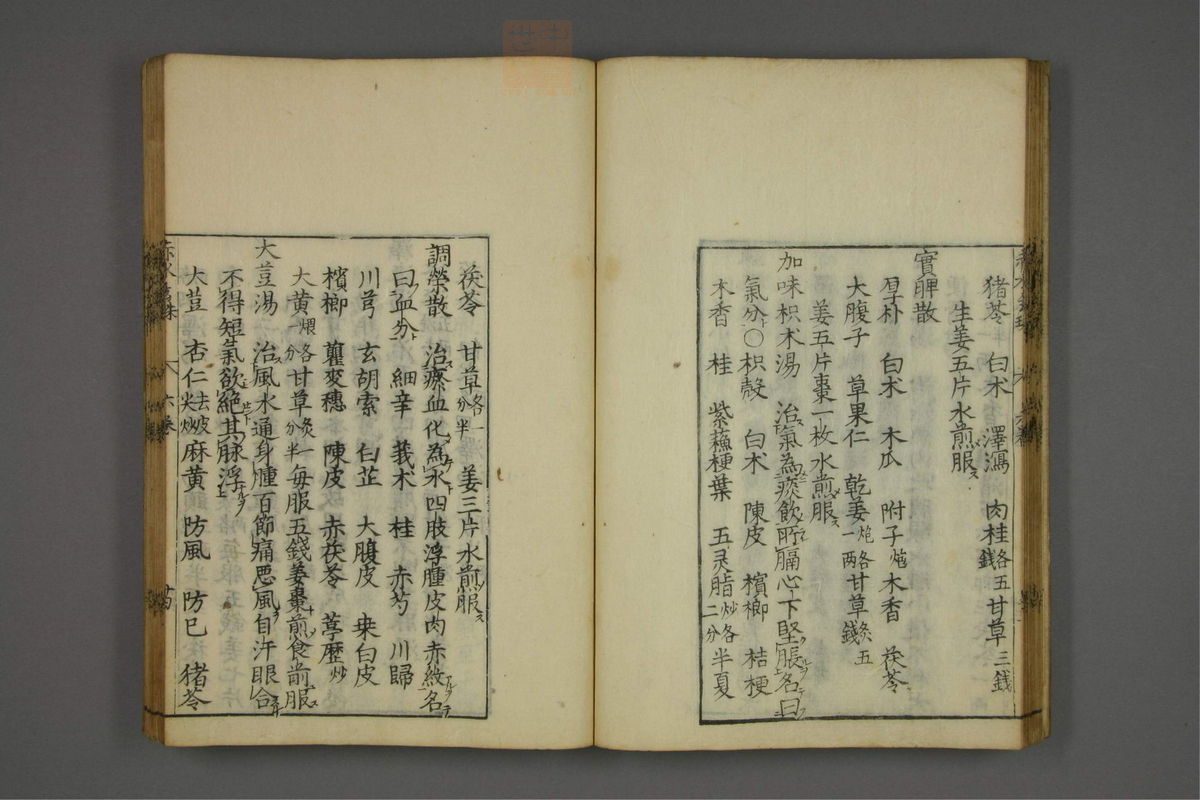 猪苓 白朮 澤瀉 肉桂各五錢 甘草三錢
生姜五片水煎服ス
實脾散
厚朴 白朮 木瓜 附子炮 木香 茯苓
大腹子 草果仁 乾姜炮各一两 甘草炙五錢
姜五片棗一枚水煎服ス
加味枳朮湯 治氣為痰飲所膈心下堅脹名曰
氣分○枳殻 白朮 陳皮 檳榔 桔梗
木香 桂 紫蘓梗葉 五灵脂炒各二分 半夏
茯苓 甘草各一分半 姜三片水煎服ス
調榮散 治瘀血化為水四肢浮腫皮肉赤紋名
曰血分 細辛 莪朮 桂 赤芍 川歸
川芎 玄胡索 白芷 大腹皮 桒白皮
檳榔 瞿麥穗 陳皮 赤茯苓 葶藶炒
大黄煨各一分 甘草炙一分半 每服五錢姜棗煎食前服
大荳湯 治風水通身腫百節痛悪風自汗眼合
不得短氣欲絶其脉浮
大荳 杏仁去皮尖炒 麻黄 防風 防已 猪苓